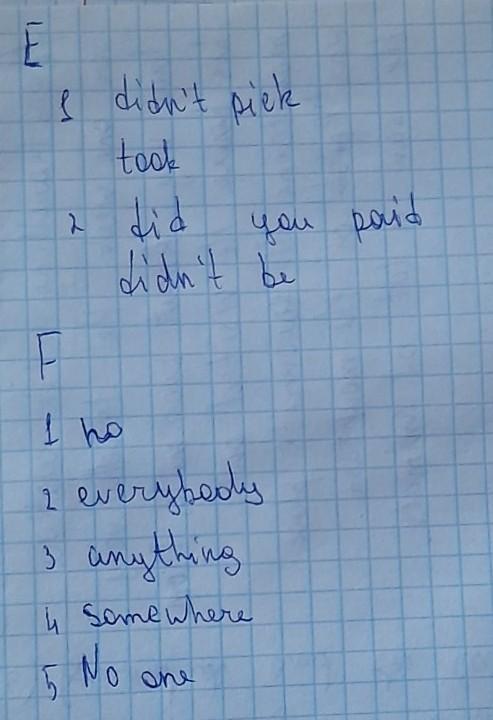 E
1 didn't pick
took
2 did you paid
didn't be
F
1 no
2 everybody
3 anything
4 somewhere
5 No one